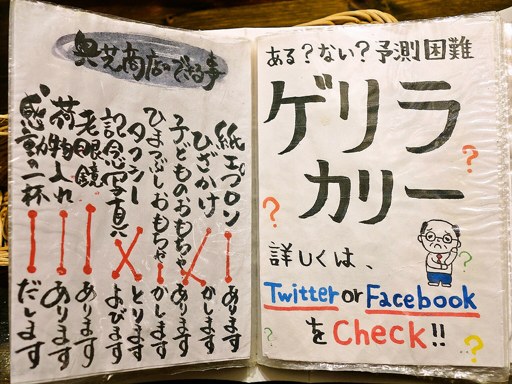 奥芝商店できる事
紙エプロン あります
ひざかけ かします
子どものおもちゃ あります
ひまつぶしおもちゃ かします
タクシー とります
記念写真 よびます
老眼鏡 あります
荷物入れ あります
感動の一杯 だします
ある?ない?予測困難
ゲリラ
カリー
?
?
?
詳しくは、
Twitter or Facebook
を Check!!
?
?